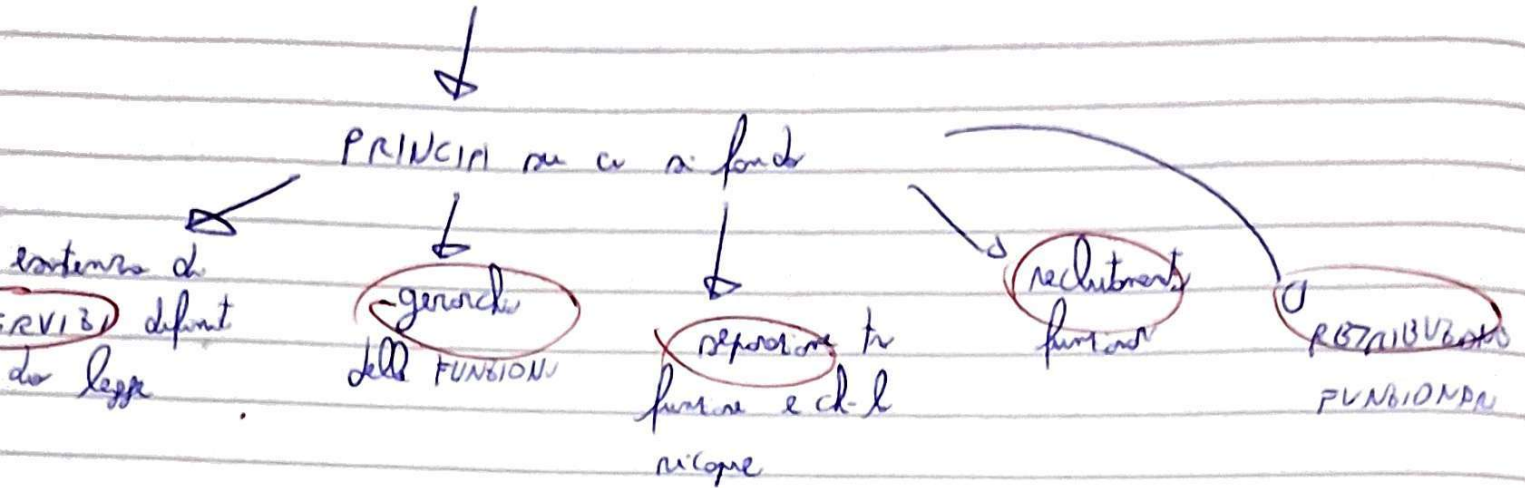 PRINCIPI su cu si fonda
esistenza di
ERVIZI definit
da legge
-gerarchi
delle FUNZIONI
separazione tr
funzione e chi l
ricopre
reclutament
funzionar
RETRIBUZIONE
FUNZIONAR